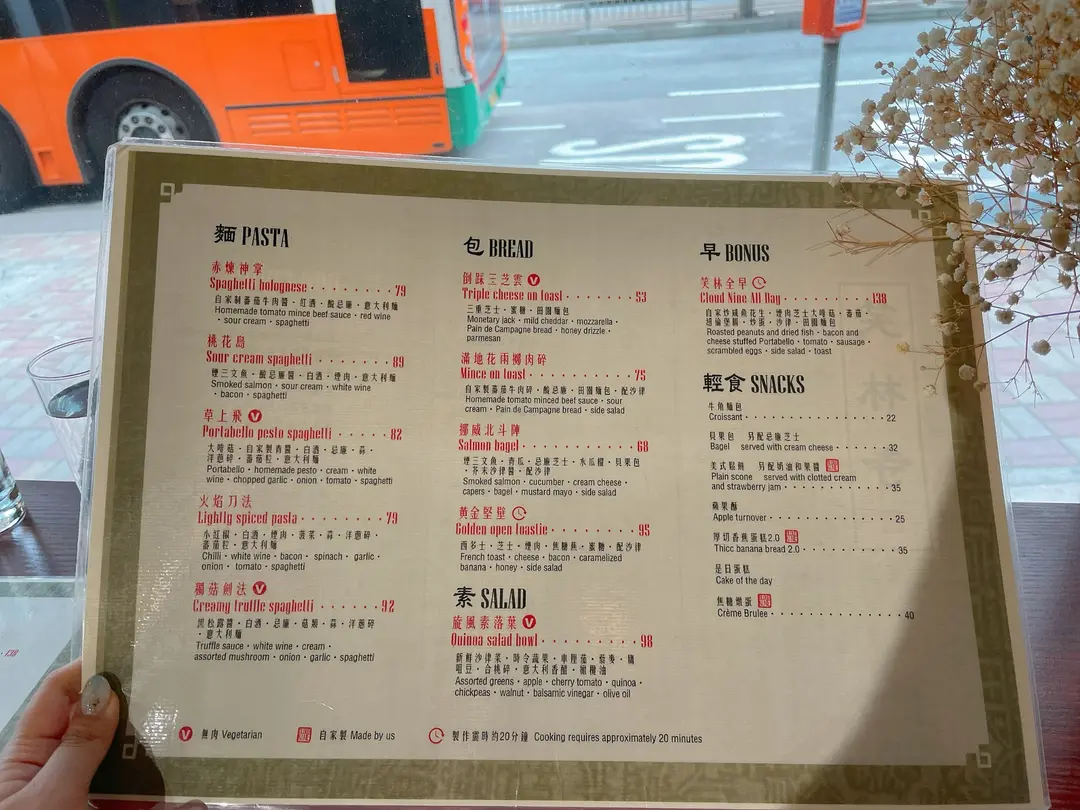 麵 PASTA
赤煉神掌
Spaghetti bolognese 79
自家制番茄牛肉醬・紅酒・酸忌廉・意大利麵
Homemade tomato mince beef sauce・red wine
・sour cream・spaghetti
桃花島
Sour cream spaghetti 89
煙三文魚・酸忌廉醬・白酒・煙肉・意大利麵
Smoked salmon・sour cream・white wine
・bacon・spaghetti
草上飛 V
Portabello pesto spaghetti 82
大啡菇・自家製青醬・白酒・忌廉・蒜・
洋蔥碎・番茄粒・意大利麵
Portabello・homemade pesto・cream・white
wine・chopped garlic・onion・tomato・spaghetti
火焰刀法
Lightly spiced pasta 79
小紅椒・白酒・煙肉・菠菜・蒜・洋蔥碎・
番茄粒・意大利麵
Chilli・white wine・bacon・spinach・garlic・
onion・tomato・spaghetti
獨菇劍法 V
Creamy truffle spaghetti 92
黑松露醬・白酒・忌廉・菇類・蒜・洋蔥碎
・意大利麵
Truffle sauce・white wine・cream・
assorted mushroom・onion・garlic・spaghetti
包 BREAD
倒踩三芝雲 V
Triple cheese on toast 53
三重芝士・蜜糖・田園麵包
Monetary jack・mild cheddar・mozzarella・
Pain de Campagne bread・honey drizzle・
parmesan
滿地花雨擲肉碎
Mince on toast 75
自家製蕃茄牛肉碎・酸忌廉・田園麵包・配沙律
Homemade tomato minced beef sauce・sour
cream・Pain de Campagne bread・side salad
挪威北斗陣
Salmon bagel 68
煙三文魚・青瓜・忌廉芝士・水瓜柳・貝果包
・芥末沙律醬・配沙律
Smoked salmon・cucumber・cream cheese・
capers・bagel・mustard mayo・side salad
黃金堅壁
Golden open toastie 95
西多士・芝士・煙肉・焦糖蕉・蜜糖・配沙律
French toast・cheese・bacon・caramelized
banana・honey・side salad
素 SALAD
旋風素落葉 V
Quinoa salad bowl 98
新鮮沙律菜・時令蔬果・車厘茄・藜麥・鷹
咀豆・合桃碎・意大利香醋・橄欖油
Assorted greens・apple・cherry tomato・quinoa・
chickpeas・walnut・balsamic vinegar・olive oil
早 BONUS
笑林全早
Cloud Nine All Day 138
自家炒咸魚花生・煙肉芝士大啡菇・番茄・
紐倫堡腸・炒蛋・沙律・田園麵包
Roasted peanuts and dried fish・bacon and
cheese stuffed Portabello・tomato・sausage・
scrambled eggs・side salad・toast
輕食 SNACKS
牛角麵包
Croissant 22
貝果包 另配忌廉芝士
Bagel served with cream cheese 32
美式鬆餅 另配奶油和果醬
Plain scone served with clotted cream
and strawberry jam 35
蘋果酥
Apple turnover 25
厚切香蕉蛋糕2.0
Thicc banana bread 2.0 35
是日蛋糕
Cake of the day
焦糖燉蛋
Crème Brulee 40
V 無肉 Vegetarian
自家製 Made by us
製作需時約20分鐘 Cooking requires approximately 20 minutes
138